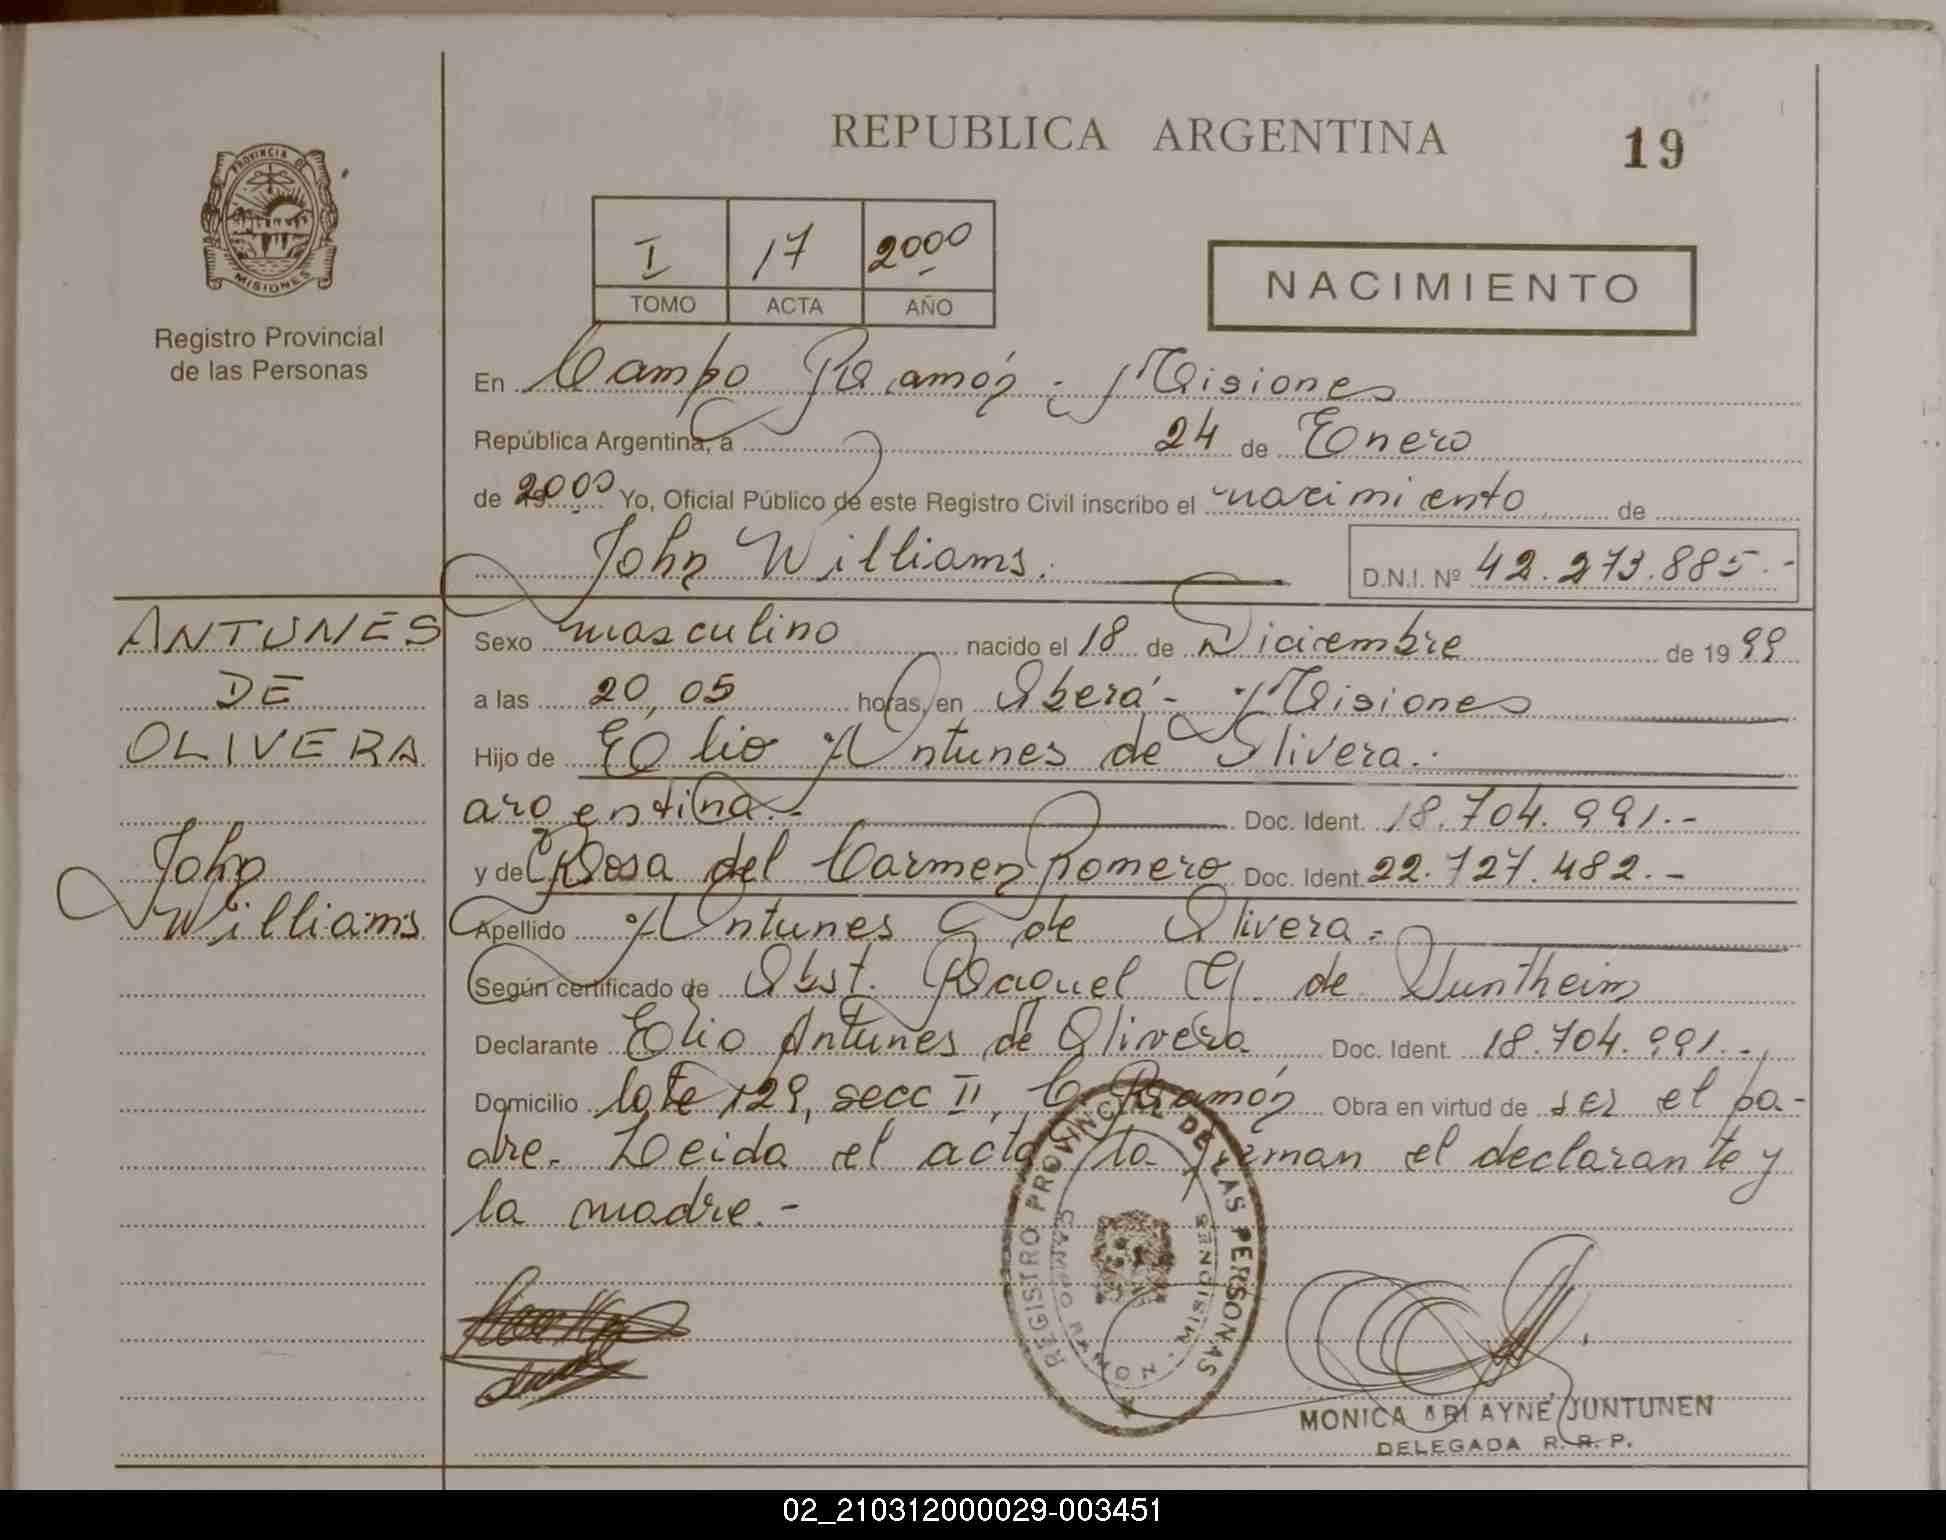 REPUBLICA ARGENTINA
19
PROVINCIA DE
MISIONES
Registro Provincial
de las Personas
I 17 2000
TOMO ACTA AÑO
NACIMIENTO
En Campo Ramón - Misiones
República Argentina, a 24 de Enero
de 2000 Yo, Oficial Público de este Registro Civil inscribo el nacimiento de
John Williams.
D.N.I. Nº 42.273.885.-
ANTUNES
DE
OLIVERA
John
Williams
Sexo masculino nacido el 18 de Diciembre de 1999
a las 20,05 horas, en Oberá - Misiones
Hijo de Elio Antunes de Olivera.
argentina.- Doc. Ident. 18.704.991.-
y de Rosa del Carmen Romero Doc. Ident. 22.727.482.-
Apellido Antunes de Olivera.-
Según certificado de Obst. Raquel G. de
Declarante Elio Antunes de Olivera Doc. Ident. 18.704.991.-
Domicilio lote 129, secc II, C. Ramón Obra en virtud de ser el pa-
dre. Leida el acta la firman el declarante y
la madre.-
REGISTRO PROVINCIAL DE LAS PERSONAS
CAMPO RAMON - MISIONES
MONICA ARLAYNE JUNTUNEN
DELEGADA R. R. P.
02_210312000029-003451